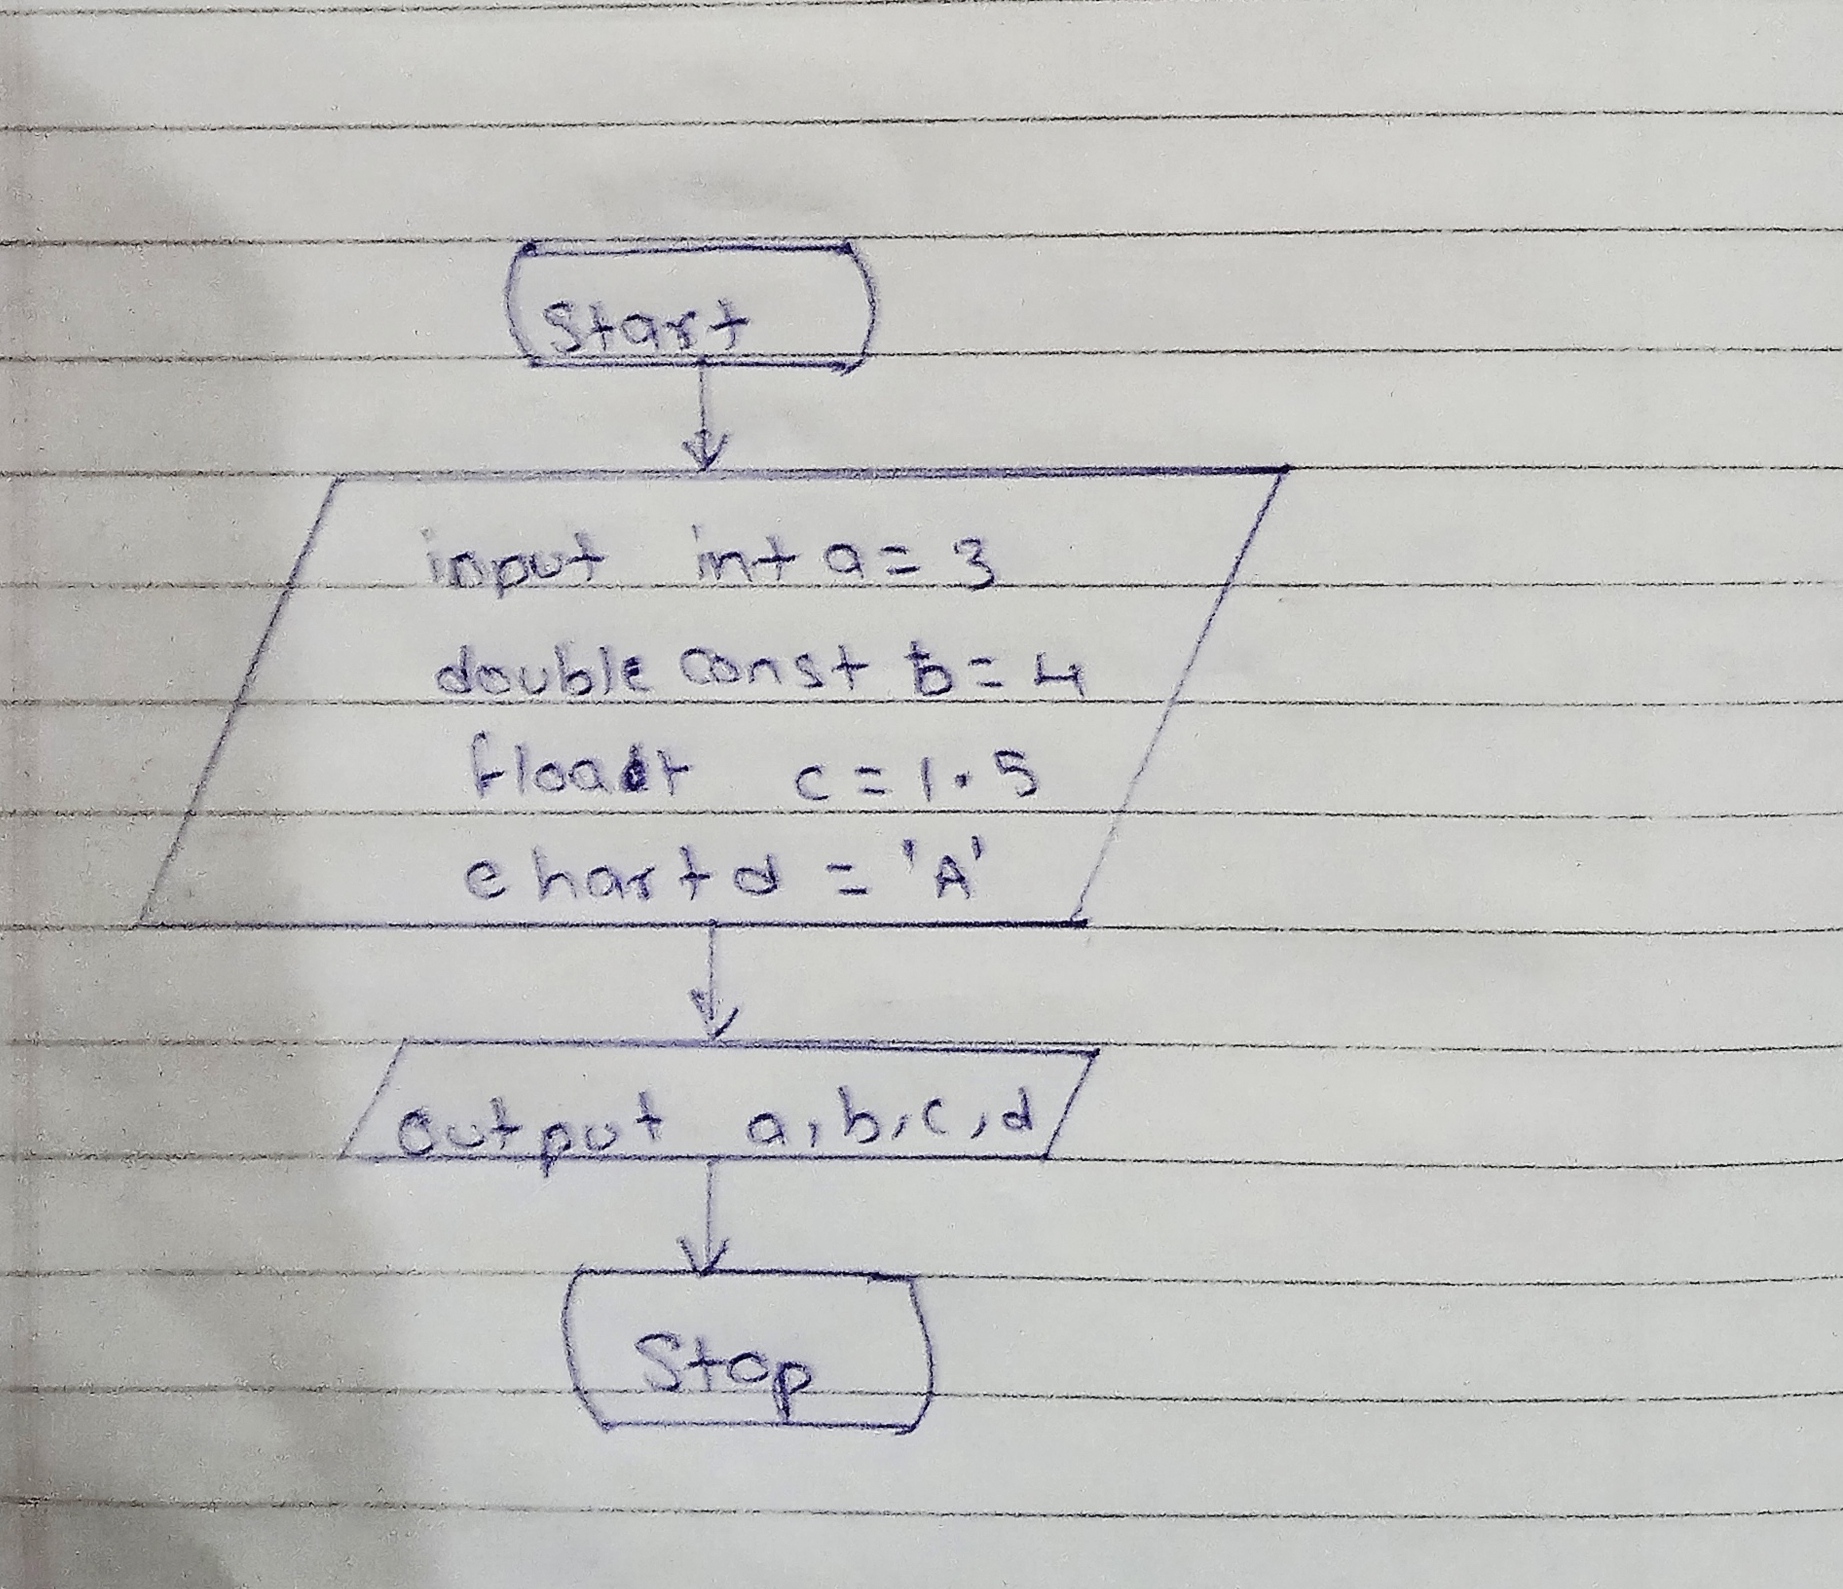 Start
input int a = 3
double const b = 4
float c = 1.5
chart d = 'A'
Output a, b, c, d
Stop